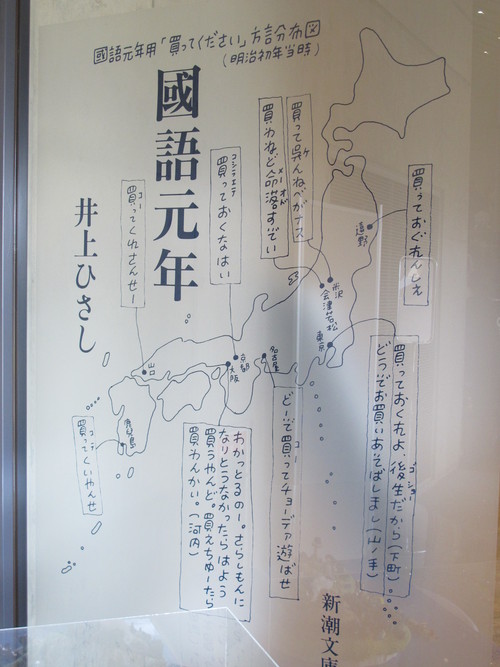 國語元年用「買ってください」方言分布図
(明治初年当時)
國語元年
井上ひさし
買っておぐれんしぇ
遠野
買って呉んねべがナス
ケ
買わねど命落すぞい
メーオド
米沢
会津若松
買っておくなはい
コシテエテ
京都
買ってくれさんせー
コー
山口
東京
買っておくれよ、後生だから(下町)
ゴショー
どうぞお買いあそばしまし(山ノ手)
名古屋
どーぞ買ってチョーデァ遊ばせ
コー
大阪
わかっとるのー。さらしもんに
なりとうなかったらはよう
買うやんど。買えちゅーたら
買わんかい。(河内)
鹿児島
買ってくいやんせ
コテ
新潮文庫